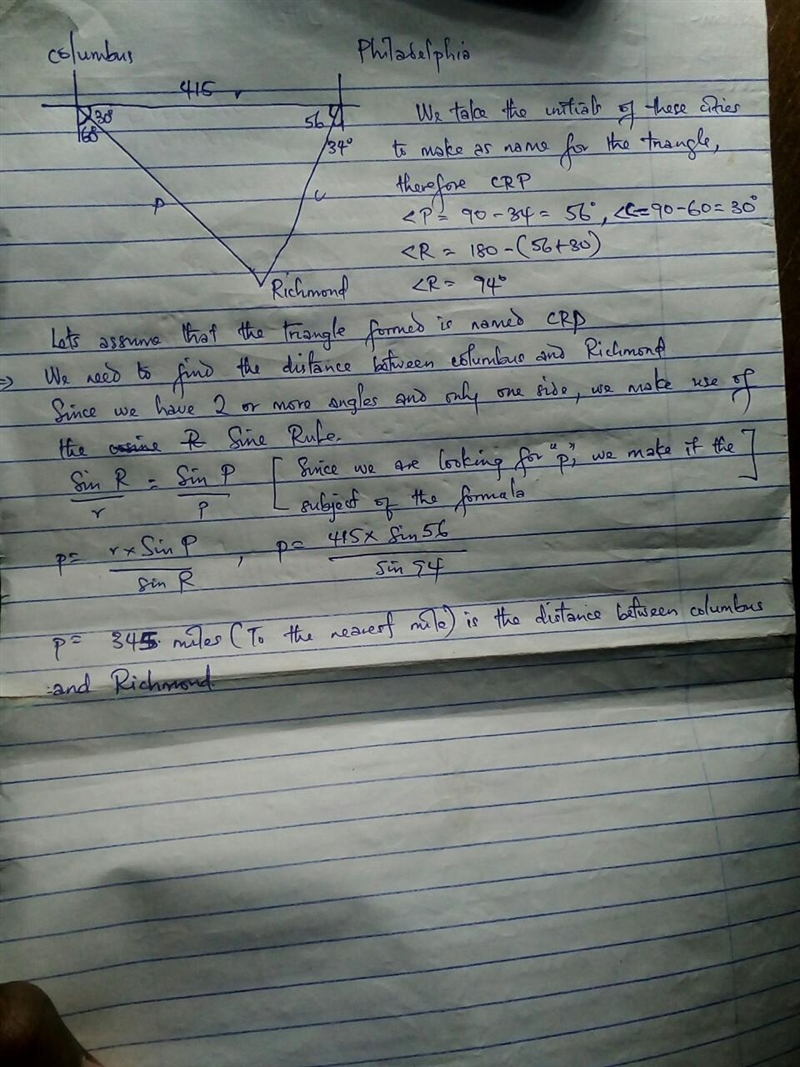 Columbus Philadelphia
415 r
30° 56
60 34°
We take the initials of these cities
to make as name for the triangle,
therefore CRP
P C
<P = 90 - 34 = 56°, <C = 90 - 60 = 30°
<R = 180 - (56+30)
Richmond <R = 94°
Lets assume that the triangle formed is named CRP
=> We need to find the distance between columbus and Richmond
Since we have 2 or more angles and only one side, we make use of
the Sine Rule.
Sin R / r = Sin P / P [Since we are looking for "p", we make it the
subject of the formula]
p = r x Sin P / sin R , p = 415 x Sin 56 / Sin 94
p = 345 miles (To the nearest mile) is the distance between columbus
and Richmond.